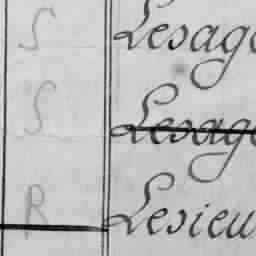 S Lesage
S Lesage
R Lesieu